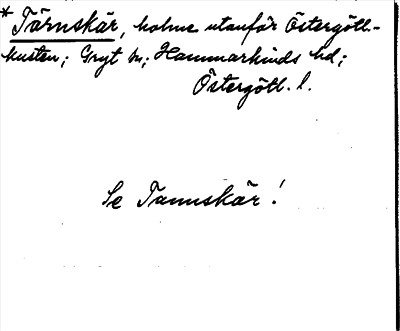 * Tärnskär, holme utanför Östergötl.-
kusten; Gryt sn; Hammarkinds hd;
Östergötl. l.
Se Tannskär!